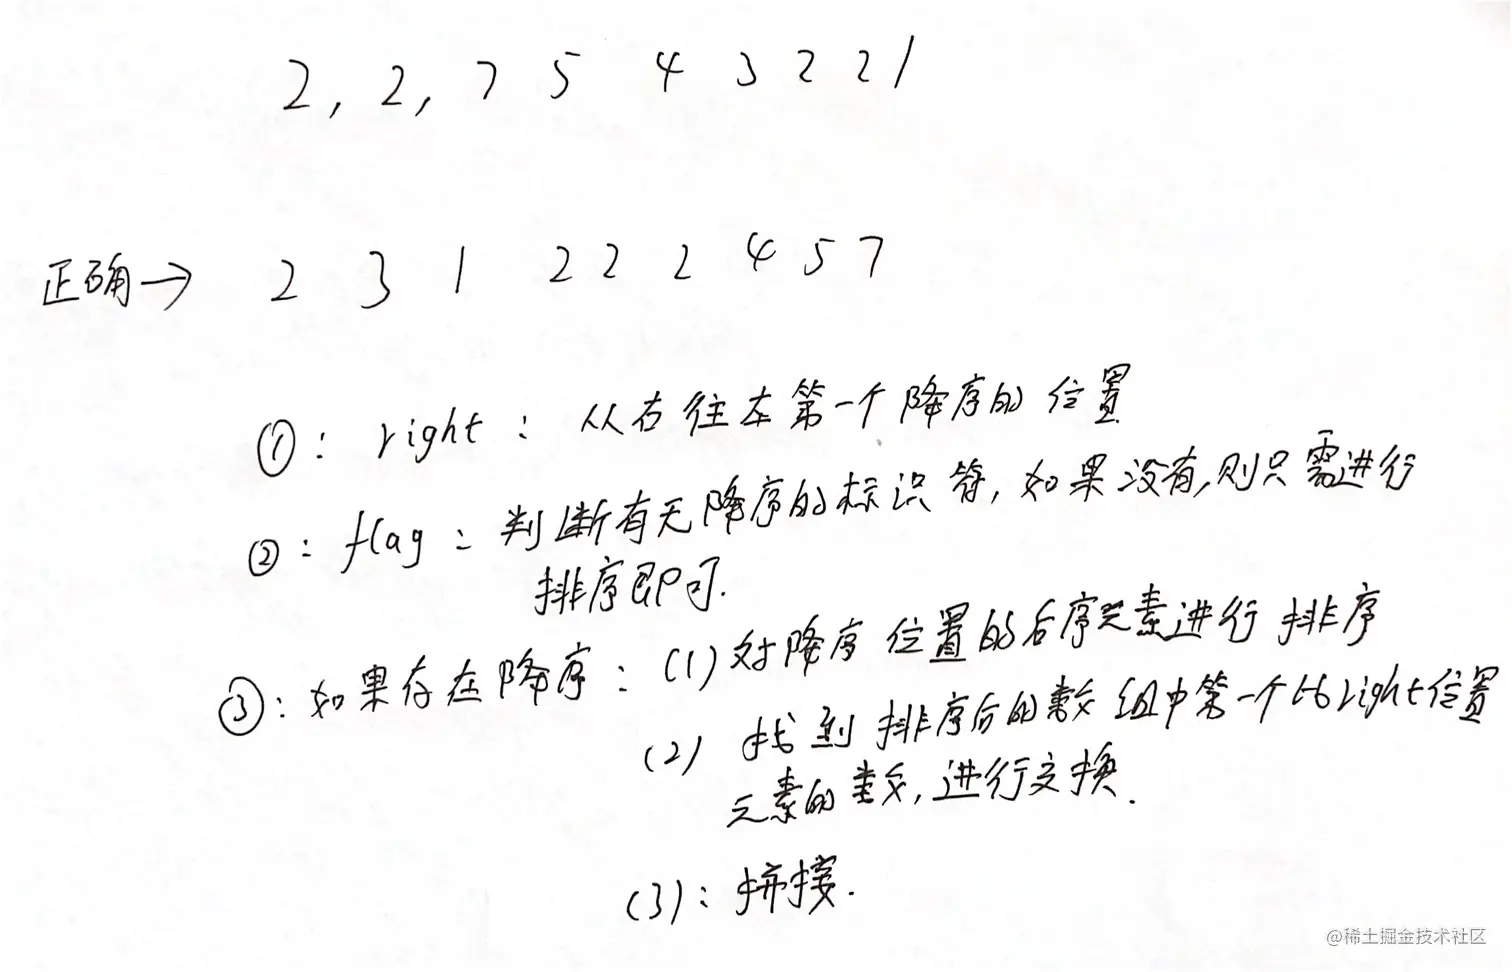 2, 2, 7 5 4 3 2 2 1
正确→ 2 3 1 2 2 2 4 5 7
①: right: 从右往左第一个降序的位置
②: flag: 判断有无降序的标识符,如果没有,则只需进行
排序即可.
③: 如果存在降序: (1) 对降序位置的后序元素进行排序
(2) 找到排序后的数组中第一个比right位置
元素的数,进行交换.
(3): 拼接.
@稀土掘金技术社区